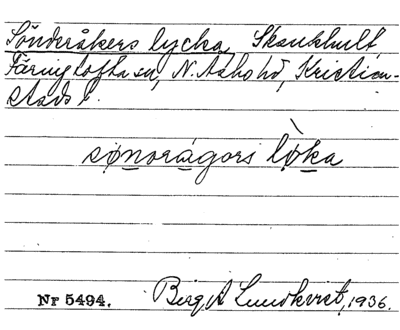 Sönderåkers lycka, Skankhult,
Färingtofta sn, N. Åsbo hd, Kristian-
stads l.
sønorågors lø̀ka
Nr 5494. Birgit Lundkvist, 1936.